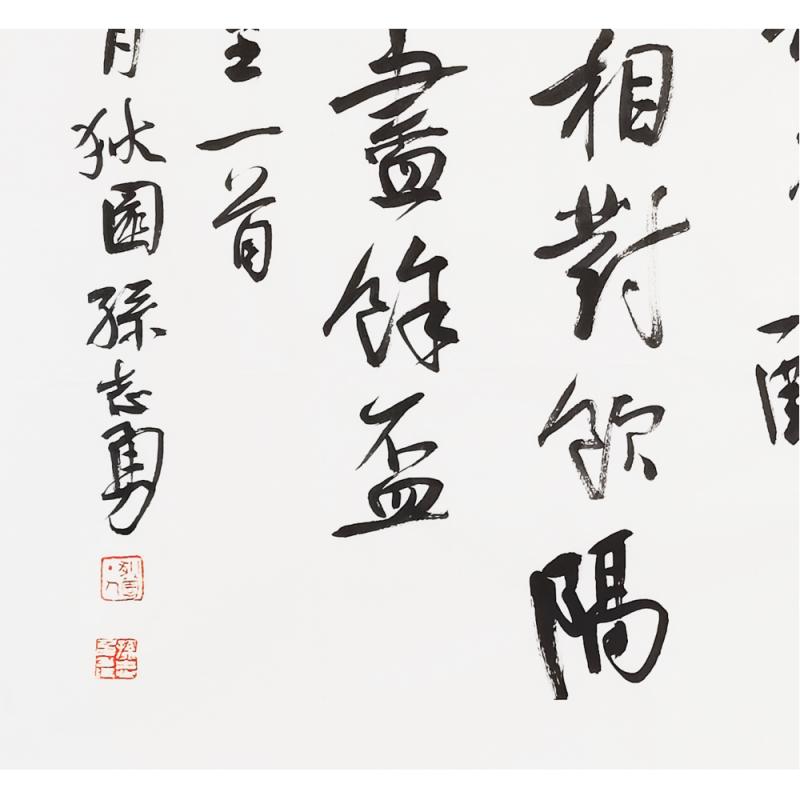 相對飲隔
盡餘盃
一首
狄園孫志勇